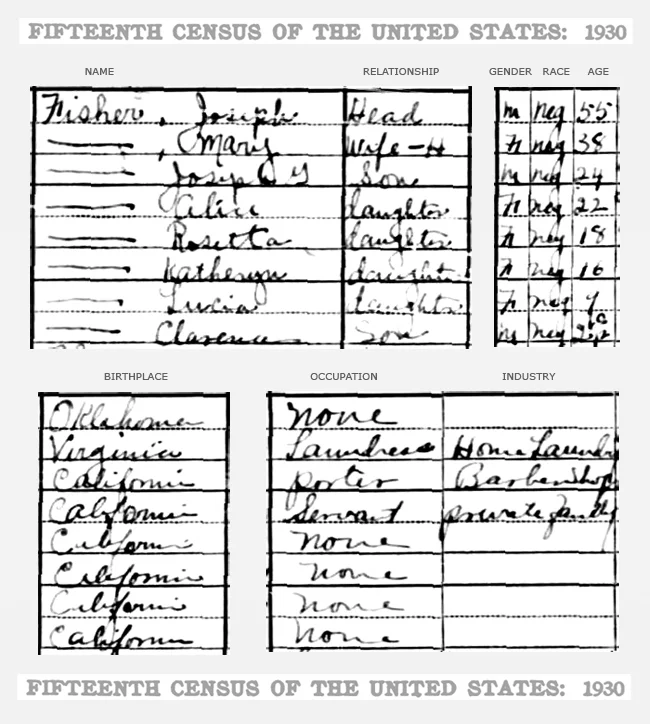 FIFTEENTH CENSUS OF THE UNITED STATES: 1930
NAME RELATIONSHIP GENDER RACE AGE
Fisher, Joseph Head m neg 55
, Mary Wife-H F neg 38
Joseph Son m neg 24
Alice daughter F neg 22
Rosetta daughter F neg 18
Katheryn daughter F neg 16
Lucia daughter F neg 9
Clarence Son m neg
BIRTHPLACE OCCUPATION INDUSTRY
Oklahoma none
Virginia Laundress Home Laundry
California porter Barber Shop
California Servant private family
California none
California none
California none
California none
FIFTEENTH CENSUS OF THE UNITED STATES: 1930